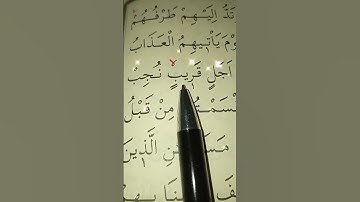 تَدُّ اِلَيْهِمْ طَرْفُهُمْ
وْمَ يَاْتِيْهِمُ الْعَذَابُ
اَجَلٍ قَرِيْبٍ ۙ نُجِبْ
مِّنْ قَبْلُ
الَّذِيْنَ
بِهِمْ